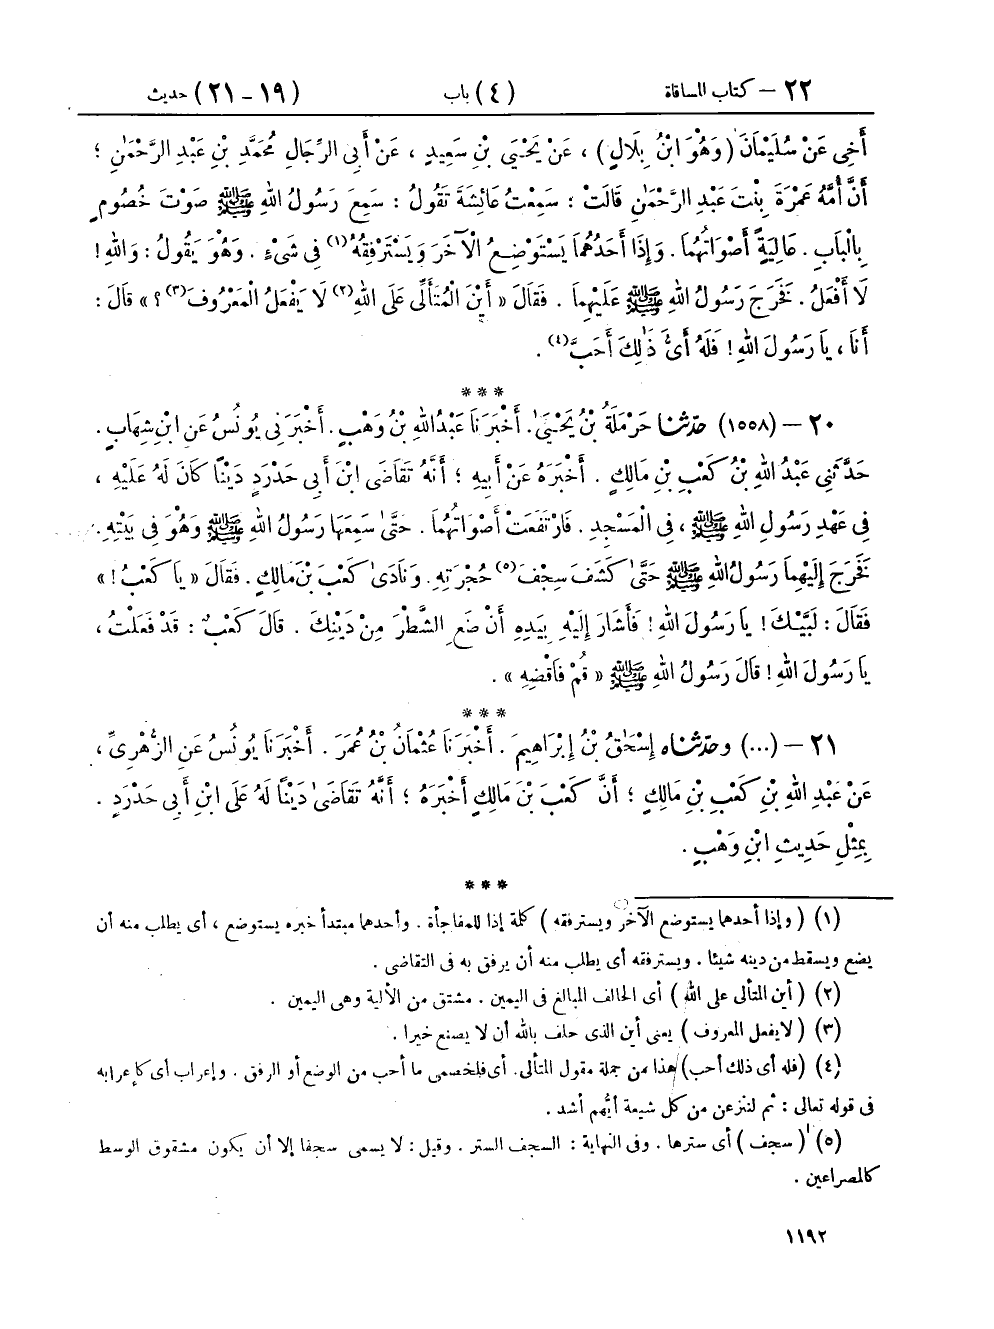 ٢٢ – كتاب المساقاة (٤) باب (١٩ – ٢١) حديث
أَخِى عَنْ سُلَيْمَانَ (وَهُوَ ابْنُ بِلَالٍ) ، عَنْ يَحْيَىٰ بْنِ سَعِيدٍ ، عَنْ أَبِى الرِّجَالِ مُحَمَّدِ بْنِ عَبْدِ الرَّحْمَٰنِ ؛
أَنَّ أُمَّهُ عَمْرَةَ بِنْتَ عَبْدِ الرَّحْمَٰنِ قَالَتْ : سَمِعْتُ عَائِشَةَ تَقُولُ : سَمِعَ رَسُولُ اللهِ ﷺ صَوْتَ خُصُومٍ
بِالْبَابِ . عَالِيَةً أَصْوَاتُهُمَا . وَإِذَا أَحَدُهُمَا يَسْتَوْضِعُ الْآخَرَ وَيَسْتَرْفِقُهُ(١) فِى شَىْءٍ . وَهُوَ يَقُولُ : وَاللهِ !
لَا أَفْعَلُ . فَخَرَجَ رَسُولُ اللهِ ﷺ عَلَيْهِمَا . فَقَالَ « أَيْنَ الْمُتَأَلِّى عَلَى اللهِ(٢) لَا يَفْعَلُ الْمَعْرُوفَ(٣) ؟ » قَالَ :
أَنَا ، يَا رَسُولَ اللهِ ! فَلَهُ أَىُّ ذَٰلِكَ أَحَبَّ(٤) .
***
٢٠ – (١٥٥٨) حَدَّثَنَا حَرْمَلَةُ بْنُ يَحْيَىٰ . أَخْبَرَنَا عَبْدُ اللهِ بْنُ وَهْبٍ . أَخْبَرَنِى يُونُسُ عَنِ ابْنِ شِهَابٍ .
حَدَّثَنِى عَبْدُ اللهِ بْنُ كَعْبِ بْنِ مَالِكٍ . أَخْبَرَهُ عَنْ أَبِيهِ ؛ أَنَّهُ تَقَاضَى ابْنَ أَبِى حَدْرَدٍ دَيْنًا كَانَ لَهُ عَلَيْهِ ،
فِى عَهْدِ رَسُولِ اللهِ ﷺ ، فِى الْمَسْجِدِ . فَارْتَفَعَتْ أَصْوَاتُهُمَا . حَتَّىٰ سَمِعَهَا رَسُولُ اللهِ ﷺ وَهُوَ فِى بَيْتِهِ .
فَخَرَجَ إِلَيْهِمَا رَسُولُ اللهِ ﷺ حَتَّىٰ كَشَفَ سِجْفَ(٥) حُجْرَتِهِ . وَنَادَىٰ كَعْبَ بْنَ مَالِكٍ . فَقَالَ « يَا كَعْبُ ! »
فَقَالَ : لَبَّيْكَ ! يَا رَسُولَ اللهِ ! فَأَشَارَ إِلَيْهِ بِيَدِهِ أَنْ ضَعِ الشَّطْرَ مِنْ دَيْنِكَ . قَالَ كَعْبٌ : قَدْ فَعَلْتُ ،
يَا رَسُولَ اللهِ ! قَالَ رَسُولُ اللهِ ﷺ « قُمْ فَاقْضِهِ » .
***
٢١ – (...) وحَدَّثَنَاه إِسْحَٰقُ بْنُ إِبْرَاهِيمَ . أَخْبَرَنَا عُثْمَانُ بْنُ عُمَرَ . أَخْبَرَنَا يُونُسُ عَنِ الزُّهْرِىِّ ،
عَنْ عَبْدِ اللهِ بْنِ كَعْبِ بْنِ مَالِكٍ ؛ أَنَّ كَعْبَ بْنَ مَالِكٍ أَخْبَرَهُ ؛ أَنَّهُ تَقَاضَىٰ دَيْنًا لَهُ عَلَى ابْنِ أَبِى حَدْرَدٍ .
بِمِثْلِ حَدِيثِ ابْنِ وَهْبٍ .
***
(١) (وإذا أحدهما يستوضع الآخر ويسترفقه) كلمة إذا للمفاجأة . وأحدهما مبتدأ خبره يستوضع ، أى يطلب منه أن
يضع ويسقط من دينه شيئا . ويسترفقه أى يطلب منه أن يرفق به فى التقاضى .
(٢) (أين المتألى على الله) أى الحالف المبالغ فى اليمين . مشتق من الألية وهى اليمين .
(٣) (لا يفعل المعروف) يعنى أين الذى حلف بالله أن لا يصنع خيرا .
(٤) (فله أى ذلك أحب) هذا من جملة مقول المتألى . أى فلخصمى ما أحب من الوضع أو الرفق . وإعراب أى كإعرابه
فى قوله تعالى : ثم لننزعن من كل شيعة أيُّهم أشد .
(٥) (سجف) أى سترها . وفى النهاية : السجف الستر . وقيل : لا يسمى سجفا إلا أن يكون مشقوق الوسط
كالمصراعين .
١١٩٢